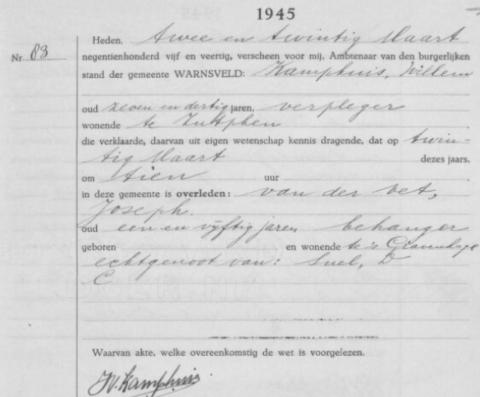 1945
Nr 83
Heden, twee en twintig Maart
negentienhonderd vijf en veertig, verscheen voor mij, Ambtenaar van den burgerlijken
stand der gemeente WARNSVELD: Kamphuis, Willem
oud zeven en dertig jaren, verpleger
wonende te Zutphen
die verklaarde, daarvan uit eigen wetenschap kennis dragende, dat op twin-
tig Maart dezes jaars,
om tien uur
in deze gemeente is overleden: van der Vet,
Joseph.
oud een en vijftig jaren, behanger
geboren en wonende te 's Gravenhage
echtgenoot van: Snel, D
C
Waarvan akte, welke overeenkomstig de wet is voorgelezen.
W. Kamphuis.